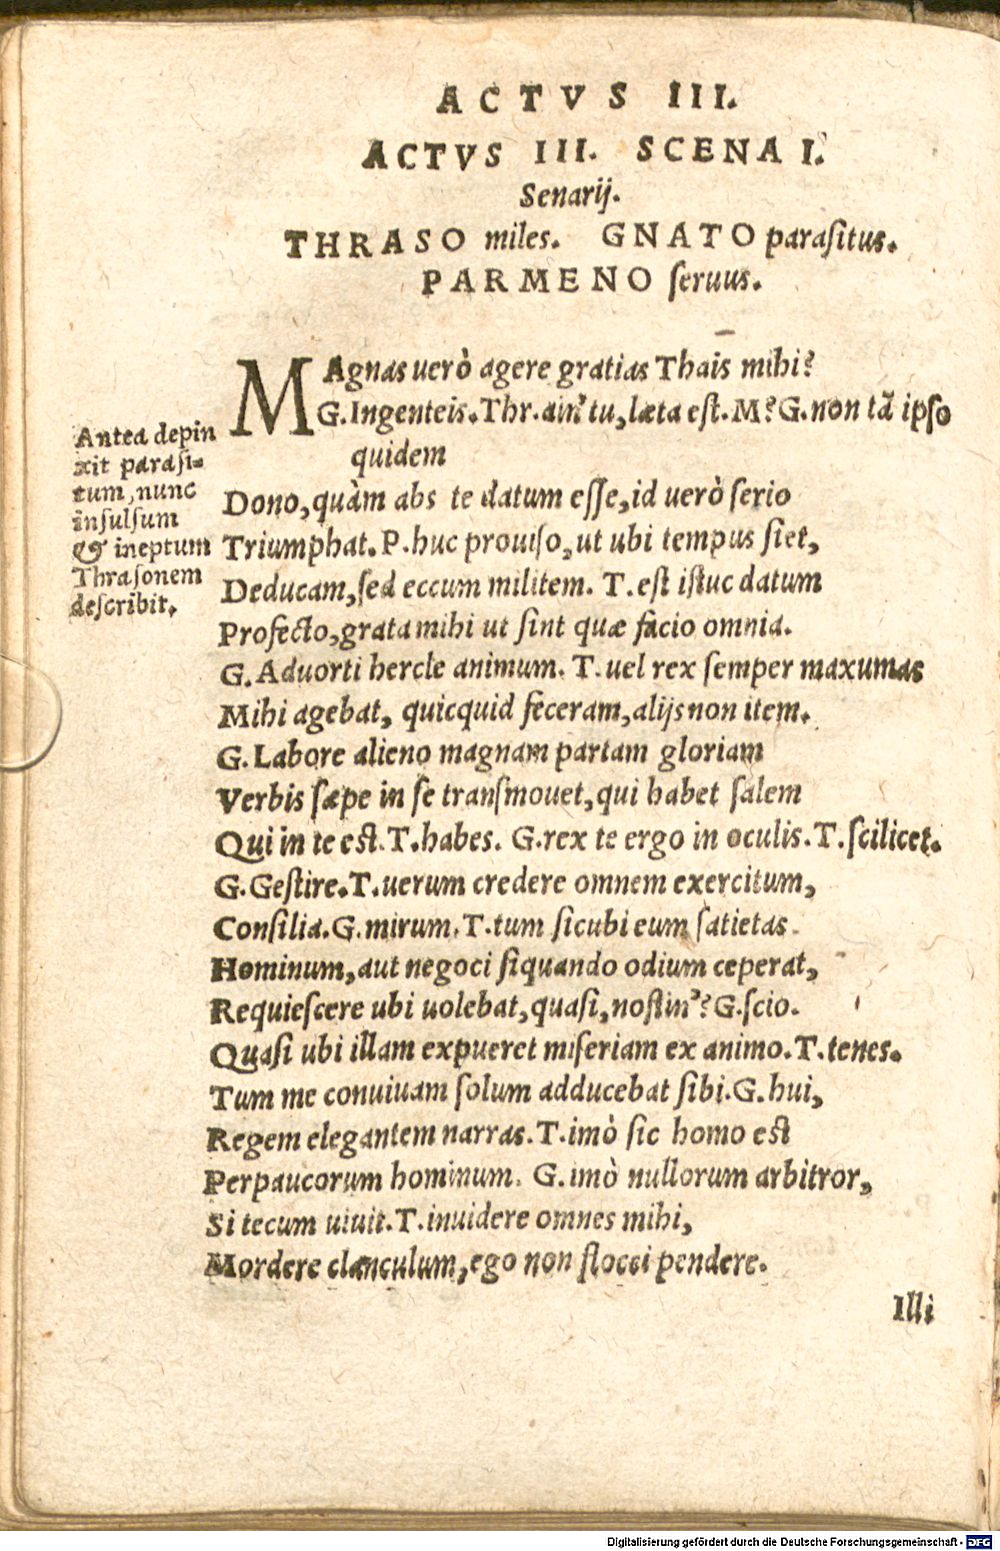 ACTVS III.
ACTVS III. SCENA I.
Senarij.
THRASO miles. GNATO parasitus.
PARMENO seruus.
MAgnas uerò agere gratias Thais mihi?
G. Ingenteis. Thr. ain' tu, læta est. M? G. non tā ipso
quidem
Dono, quàm abs te datum esse, id uerò serio
Triumphat. P. huc prouiso, ut ubi tempus siet,
Deducam, sed eccum militem. T. est istuc datum
Profecto, grata mihi ut sint quæ facio omnia.
G. Aduorti hercle animum. T. uel rex semper maxumas
Mihi agebat, quicquid feceram, alijs non item.
G. Labore alieno magnam partam gloriam
Verbis sæpe in se transmouet, qui habet salem
Qui in te est. T. habes. G. rex te ergo in oculis. T. scilicet.
G. Gestire. T. uerum credere omnem exercitum,
Consilia. G. mirum. T. tum sicubi eum satietas
Hominum, aut negoci siquando odium ceperat,
Requiescere ubi uolebat, quasi, nostin'? G. scio.
Quasi ubi illam expueret miseriam ex animo. T. tenes.
Tum me conuiuam solum adducebat sibi. G. hui,
Regem elegantem narras. T. imò sic homo est
Perpaucorum hominum. G. imò nullorum arbitror,
Si tecum uiuit. T. inuidere omnes mihi,
Mordere clanculum, ego non flocci pendere.
Illi
Antea depin
xit parasi-
tum, nunc
insulsum
& ineptum
Thrasonem
describit.
Digitalisierung gefördert durch die Deutsche Forschungsgemeinschaft - DFG